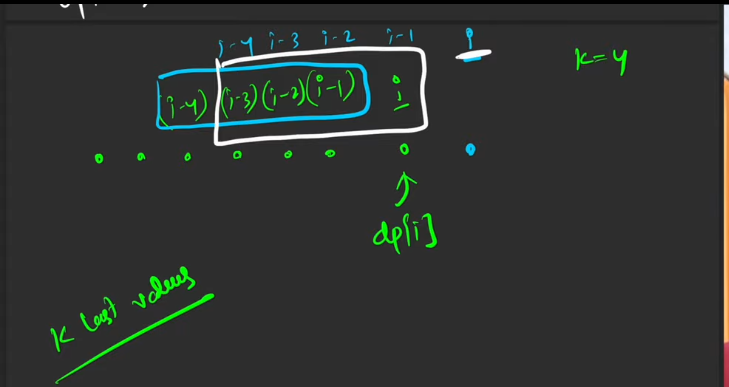 i-4 i-3 i-2 i-1 i
k=4
(i-4) (i-3) (i-2) (i-1) i
dp[i]
k last values